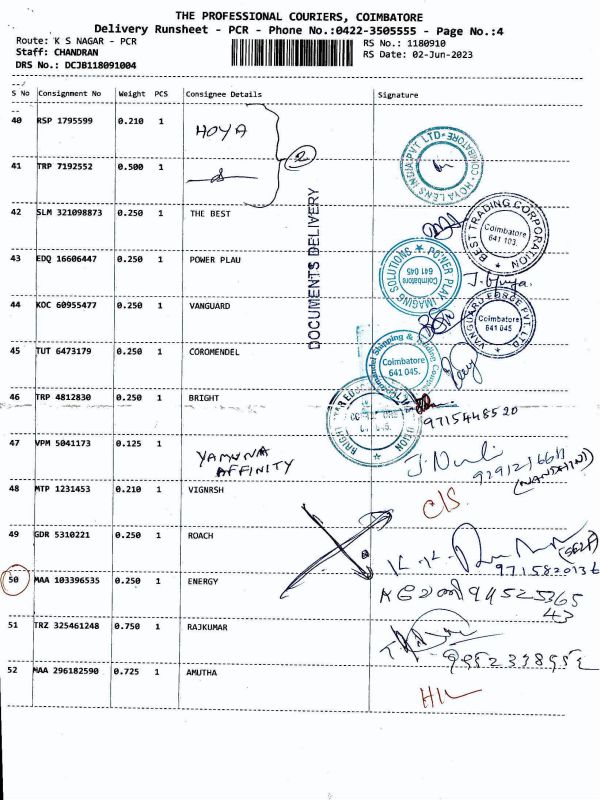 THE PROFESSIONAL COURIERS, COIMBATORE
Delivery Runsheet - PCR - Phone No.:0422-3505555 - Page No.:4
Route: K S NAGAR - PCR
RS No.: 1180910
Staff: CHANDRAN
RS Date: 02-Jun-2023
DRS No.: DCJB118091004
S No Consignment No Weight PCS Consignee Details Signature
40 RSP 1795599 0.210 1 HOYA
2
41 TRP 7192552 0.500 1
HOYA LENS INDIA PVT LTD COIMBATORE
DOCUMENTS DELIVERY
42 SLM 321098873 0.250 1 THE BEST
BEST TRADING CORPORATION
Coimbatore
641 103.
43 EDQ 16606447 0.250 1 POWER PLAU
POWER PLAY IMAGING SOLUTIONS
Coimbatore
641 045
44 KOC 60955477 0.250 1 VANGUARD
VANGUARD FORCE PVT. LTD
Coimbatore
641 045
45 TUT 6473179 0.250 1 COROMENDEL
Coromendel Shipping & Trading Company
Coimbatore
641 045.
46 TRP 4812830 0.250 1 BRIGHT
BRIGHT
9715448520
47 VPM 5041173 0.125 1 YAMUNA
AFFINITY
(NANDHINI)
48 MTP 1231453 0.210 1 VIGNRSH
C/S
49 GDR 5310221 0.250 1 ROACH
9715820136
50 MAA 103396535 0.250 1 ENERGY
51 TRZ 325461248 0.750 1 RAJKUMAR
52 MAA 296182590 0.725 1 AMUTHA